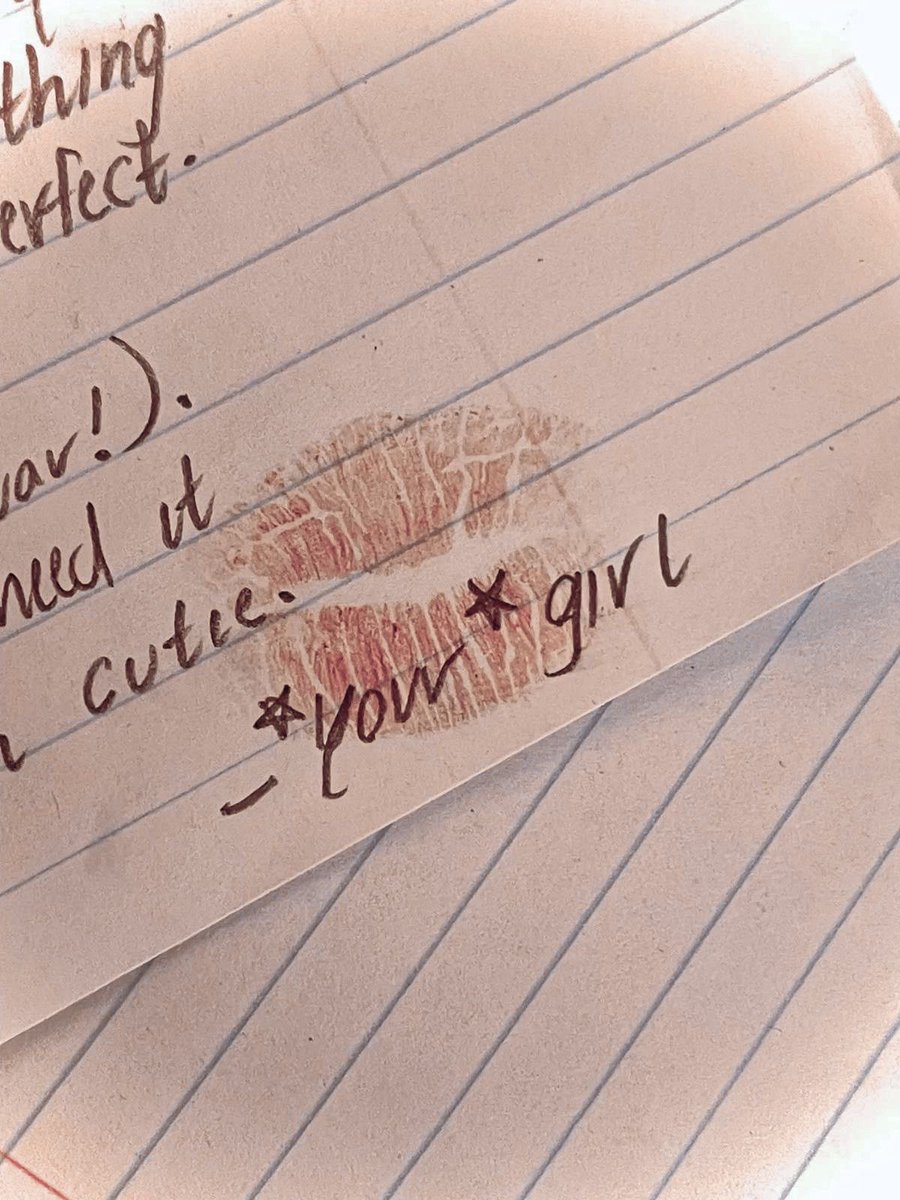 thing
erfect.
!).
need it
cutie.
- *your* girl